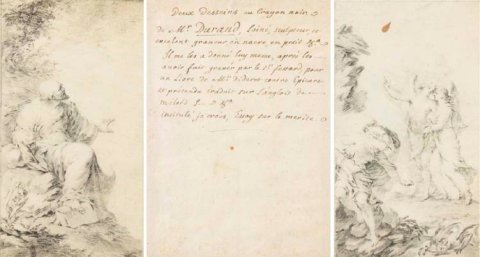 Deux Desseins au Crayon noir
de Mr. Durand, l'ainé, sculpteur, et
excelent graveur, en nacre, en petit &a.
Il me les a donné luy meme, après les
avoir fait graver par le Sr. fessard, pour
un Livre de Mr. diderot contre Epicure
et pretendu traduit sur l'anglois de
milord S. &a.
intitulé, je crois, Essay sur le merite.